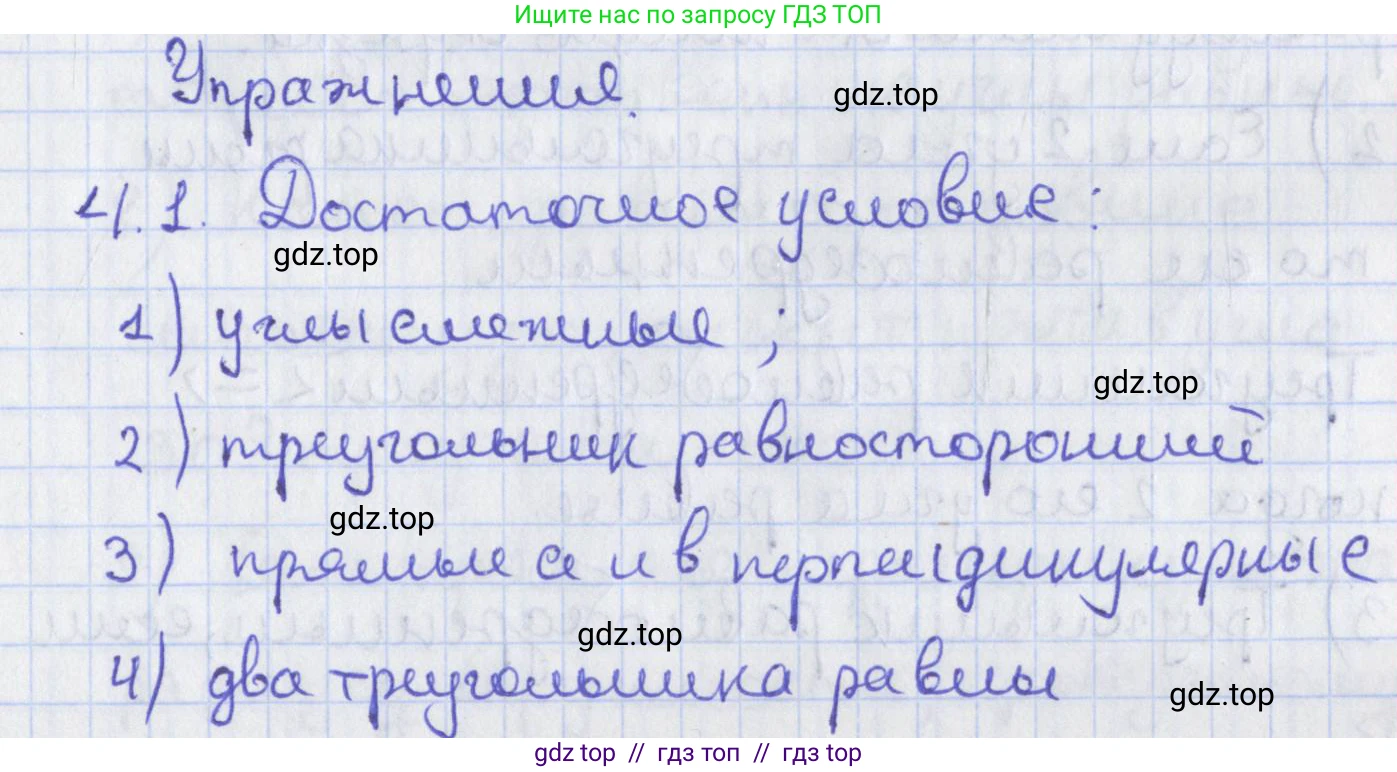 Ищите нас по запросу ГДЗ ТОП
Упражнения.
gdz.top
4.1. Достаточное условие:
gdz.top
1) углы смежные;
gdz.top
2) треугольник равносторонний
gdz.top
3) прямые a и b перпендикулярные
gdz.top
4) два треугольника равны
gdz.top
gdz top // гдз топ // гдз top